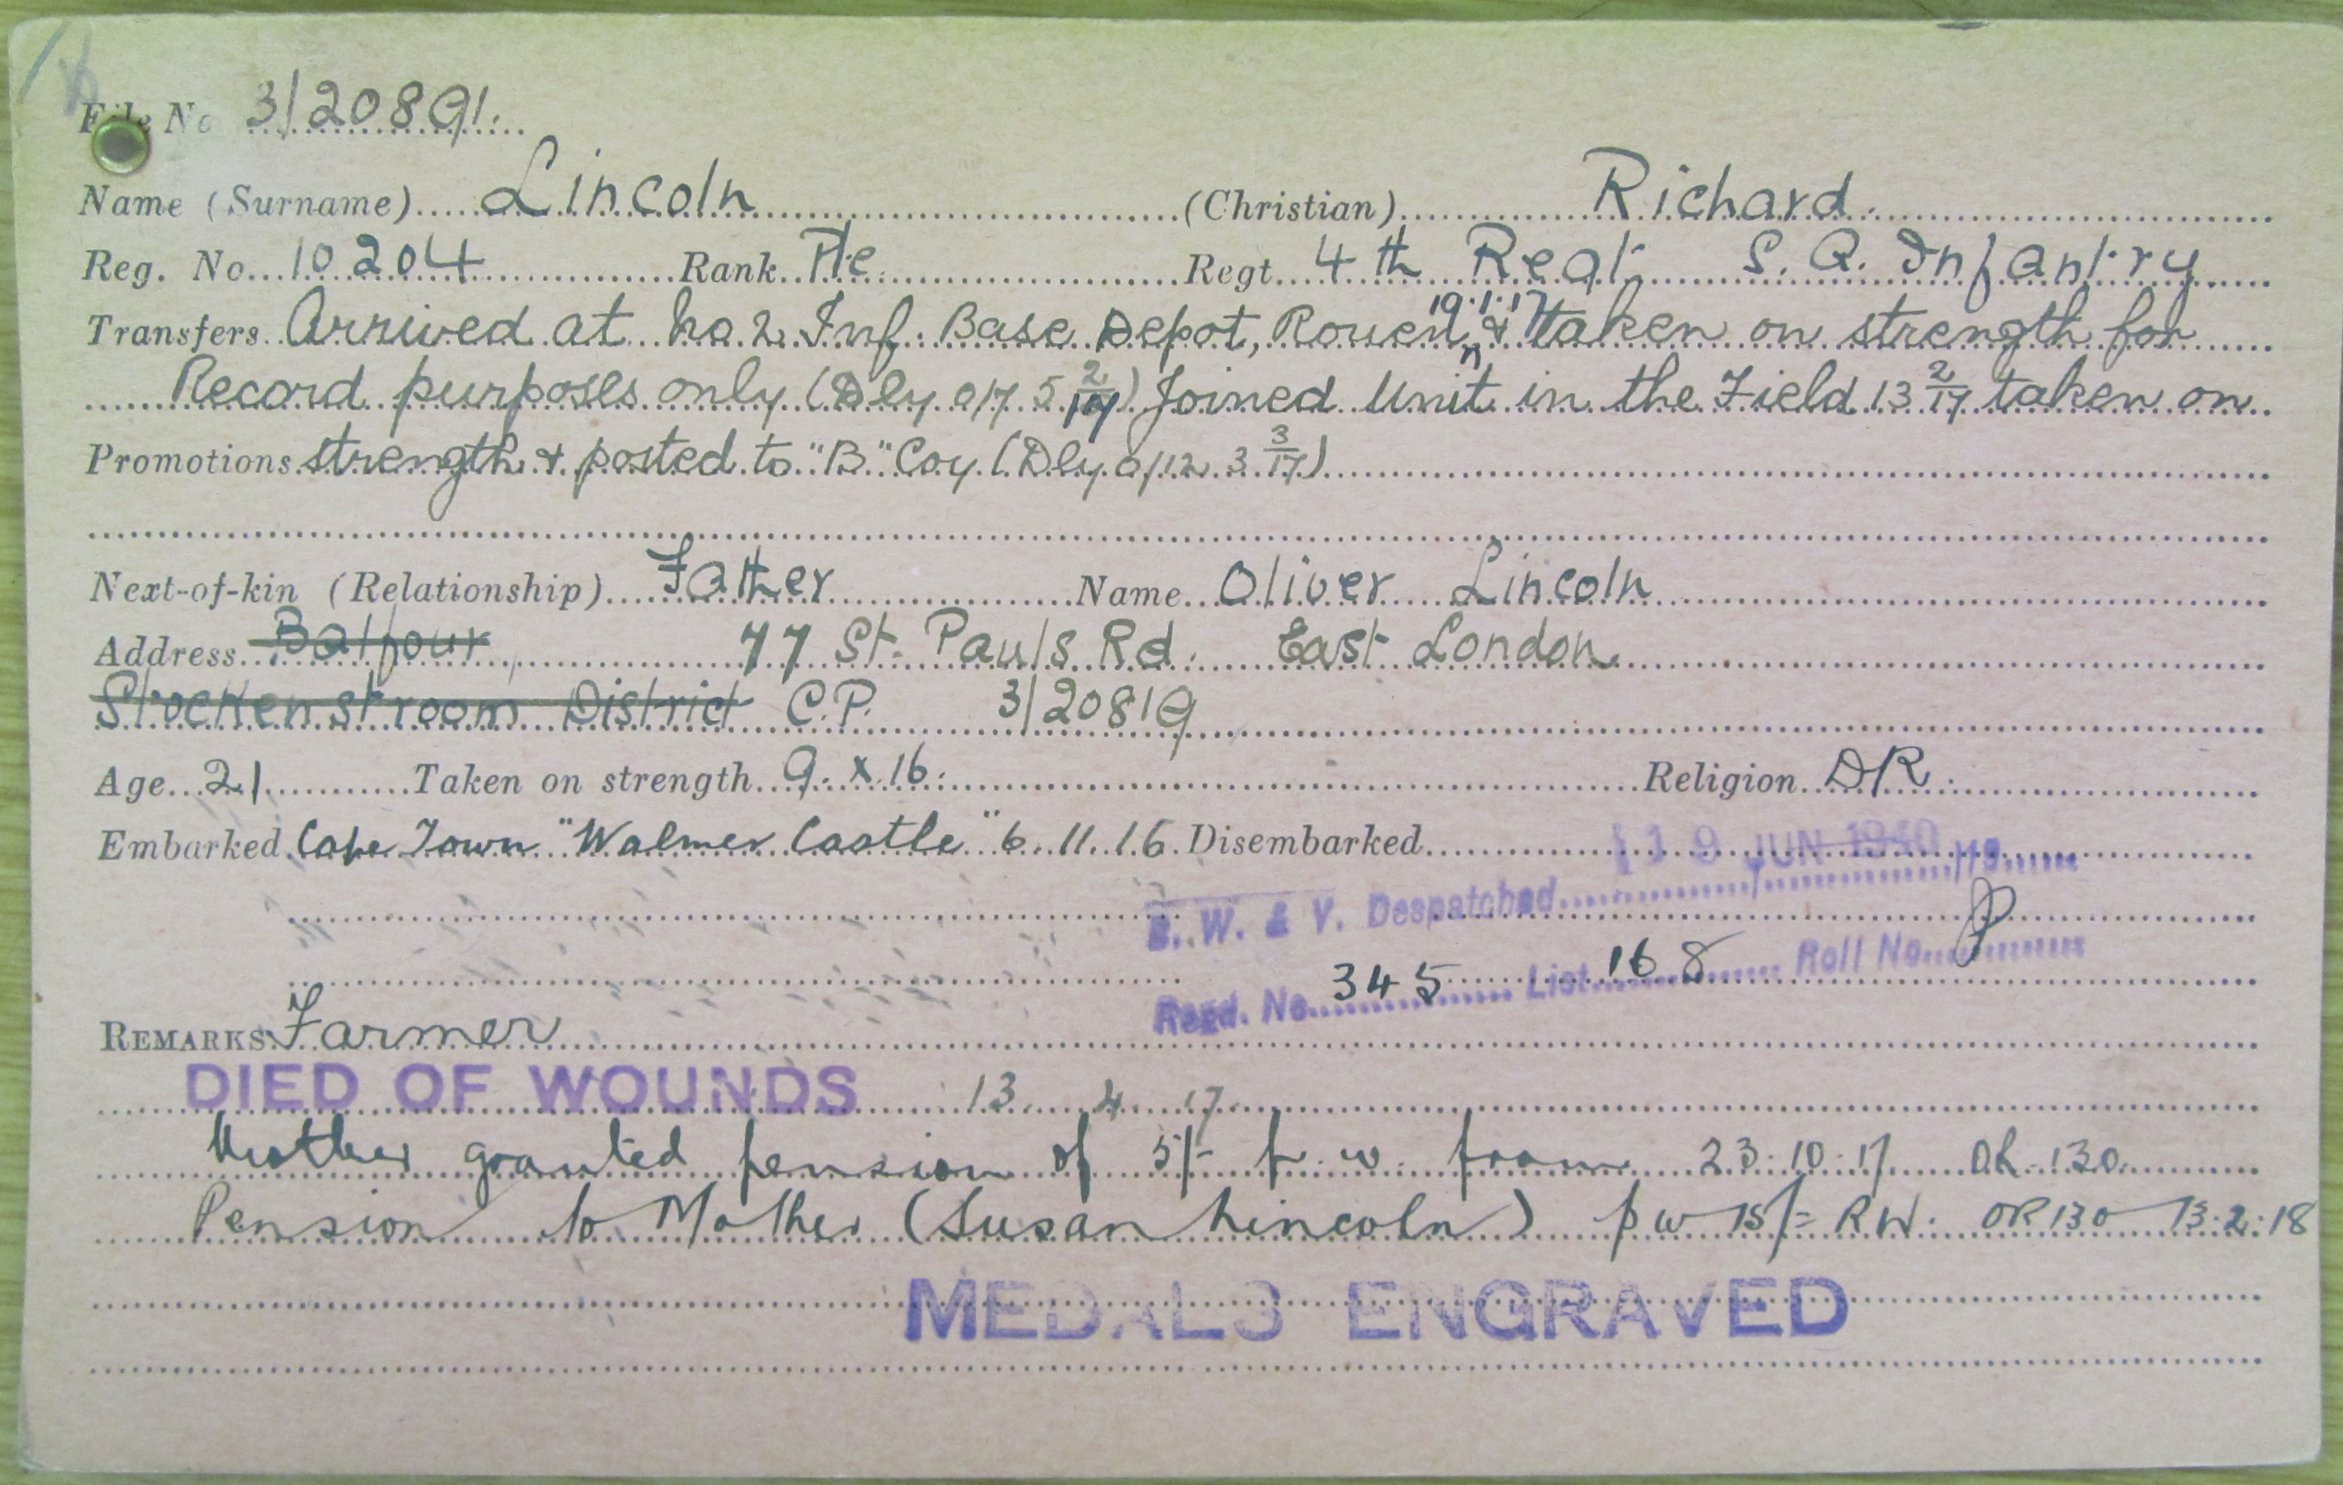 File No 3/20891.
Name (Surname) Lincoln (Christian) Richard
Reg. No. 10204 Rank Pte Regt 4th Regt. S. A. Infantry
Transfers Arrived at No. 2. Inf. Base Depot, Rouen 19.1.17 & taken on strength for
Record purposes only (Dly o/7 5 2/17) Joined Unit in the Field 13 2/17 taken on
Promotions strength & posted to "B" Coy (Dly o/12 3 3/17)
Next-of-kin (Relationship) Father Name Oliver Lincoln
Address Balfour 77 St. Pauls Rd. East London
Stockenstroom District C.P. 3/20819
Age 21 Taken on strength 9. X. 16. Religion DR.
Embarked Cape Town "Walmer Castle" 6.11.16. Disembarked
19 JUN 1940 /19
B. W. & V. Despatched
Regd. No. 345 List 168 Roll No.
REMARKS Farmer
DIED OF WOUNDS 13 4 17
Mother granted pension of 5/- p. w. from 23.10.17 OR 130
Pension to Mother (Susan Lincoln) p w 15/= RW. OR 130 13.2.18
MEDALS ENGRAVED